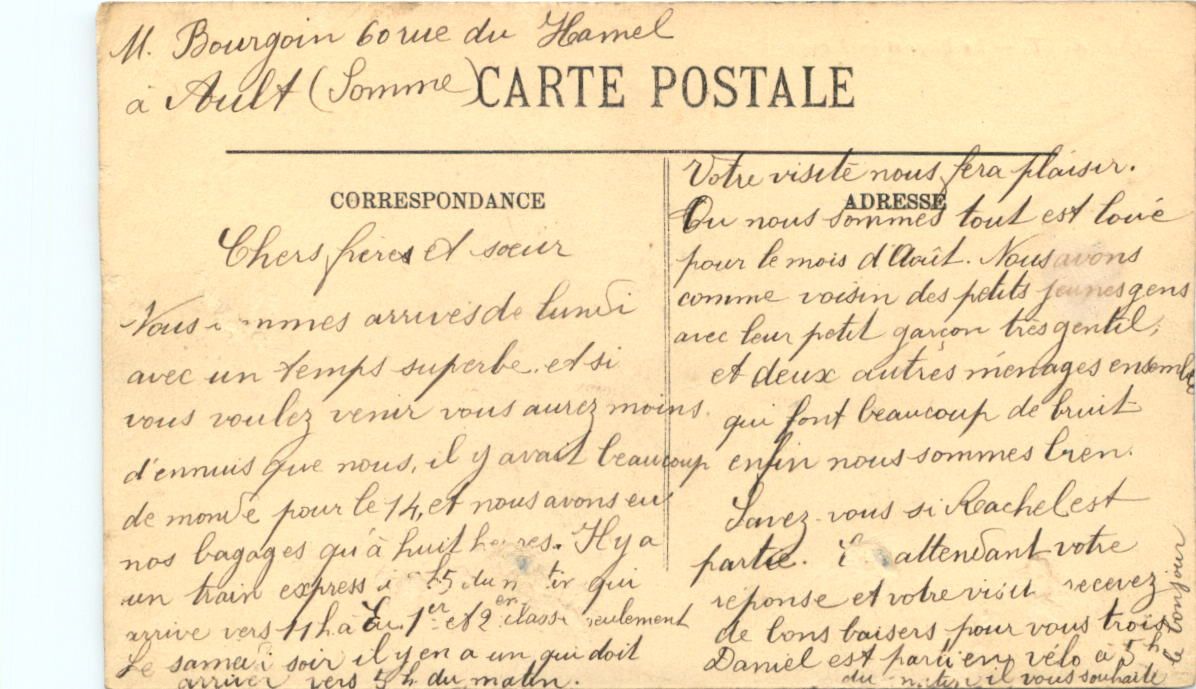 M. Bourgoin 60 rue du Hamel
à Ault (Somme)
CARTE POSTALE
CORRESPONDANCE
Chers frères et sœur
Nous sommes arrivés de lundi
avec un temps superbe. et si
vous voulez venir vous aurez moins
d'ennuis que nous, il y avait beaucoup
de monde pour le 14, et nous avons eu
nos bagages qu'à huit heures. Il y a
un train express 5 du qui
arrive vers 11 h à Eu. 1er et 2en classe seulement
Le samedi soir il y en a un qui doit
arriver vers 5 h du matin.
ADRESSE
Votre visite nous fera plaisir.
Ou nous sommes tout est loué
pour le mois d'Août. Nous avons
comme voisin des petits jeunes gens
avec leur petit garçon très gentil,
et deux autres ménages ensemble
qui font beaucoup de bruit
enfin nous sommes bien.
Savez-vous si Rachel est
partie. attendant votre
réponse et votre visite recevez
de bons baisers pour vous trois
Daniel est parti en vélo à 5 h
du matin il vous souhaite
le bonjour